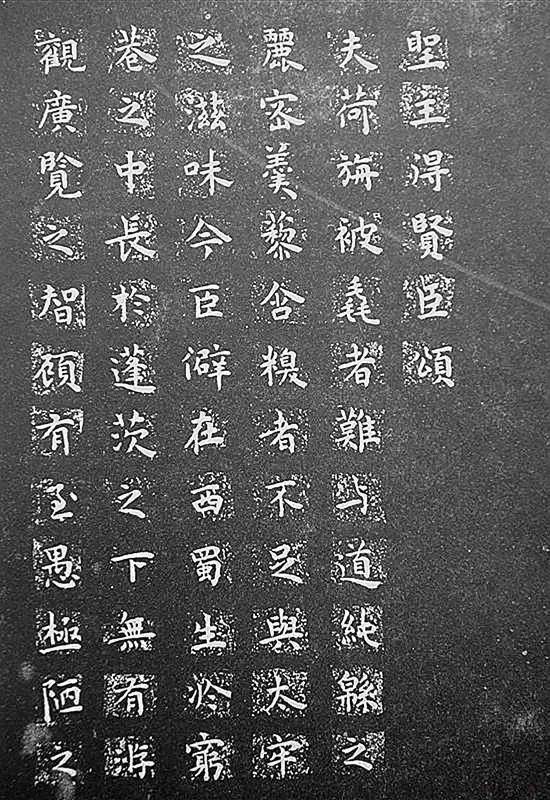 聖主得賢臣頌
夫荷旃被毳者難与道純緜之
麗密羹藜唅糗者不足與太牢
之滋味今臣僻在西蜀生於窮
巷之中長於蓬茨之下無有游
觀廣覽之智顧有至愚極陋之